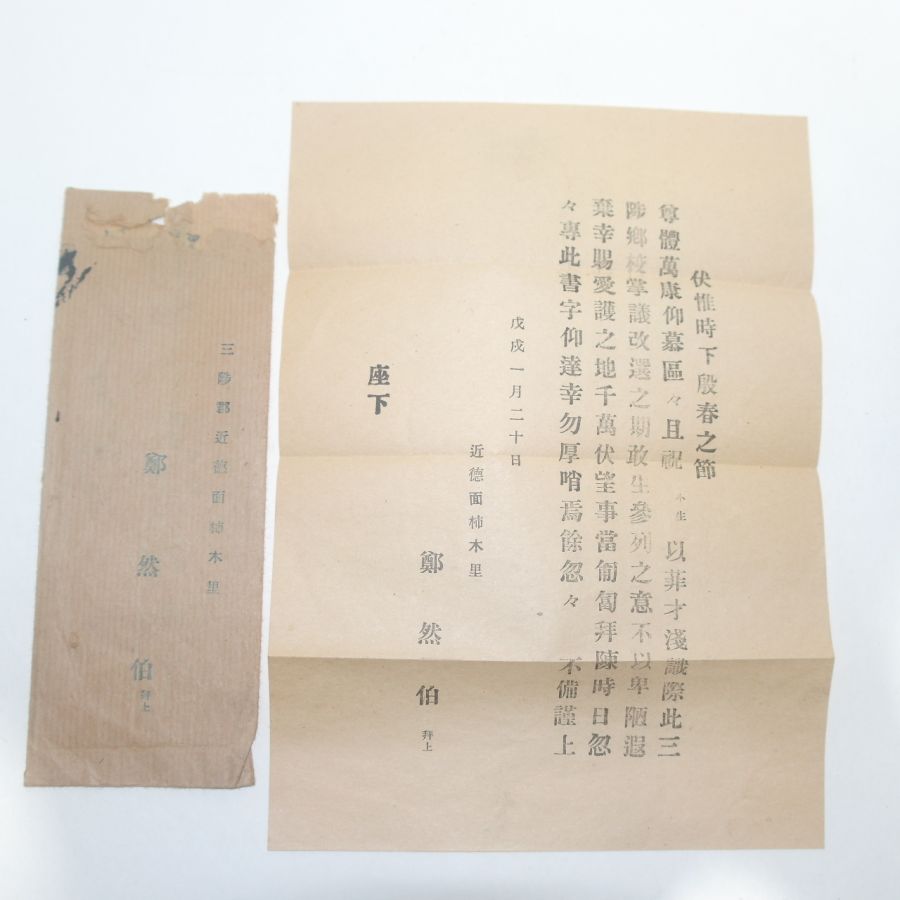 伏惟時下殷春之節
尊體萬康仰慕區々且祝 小生 以菲才淺識際此三
陟鄉校掌議改選之期敢生參列之意不以卑陋遐
棄幸賜愛護之地千萬伏望事當匍匐拜陳時日忽
々專此書字仰達幸勿厚哨焉餘忽々 不備謹上
戊戌一月二十日
近德面柿木里
鄭然伯 拜上
座下
三陟郡近德面柿木里
鄭然伯 拜上